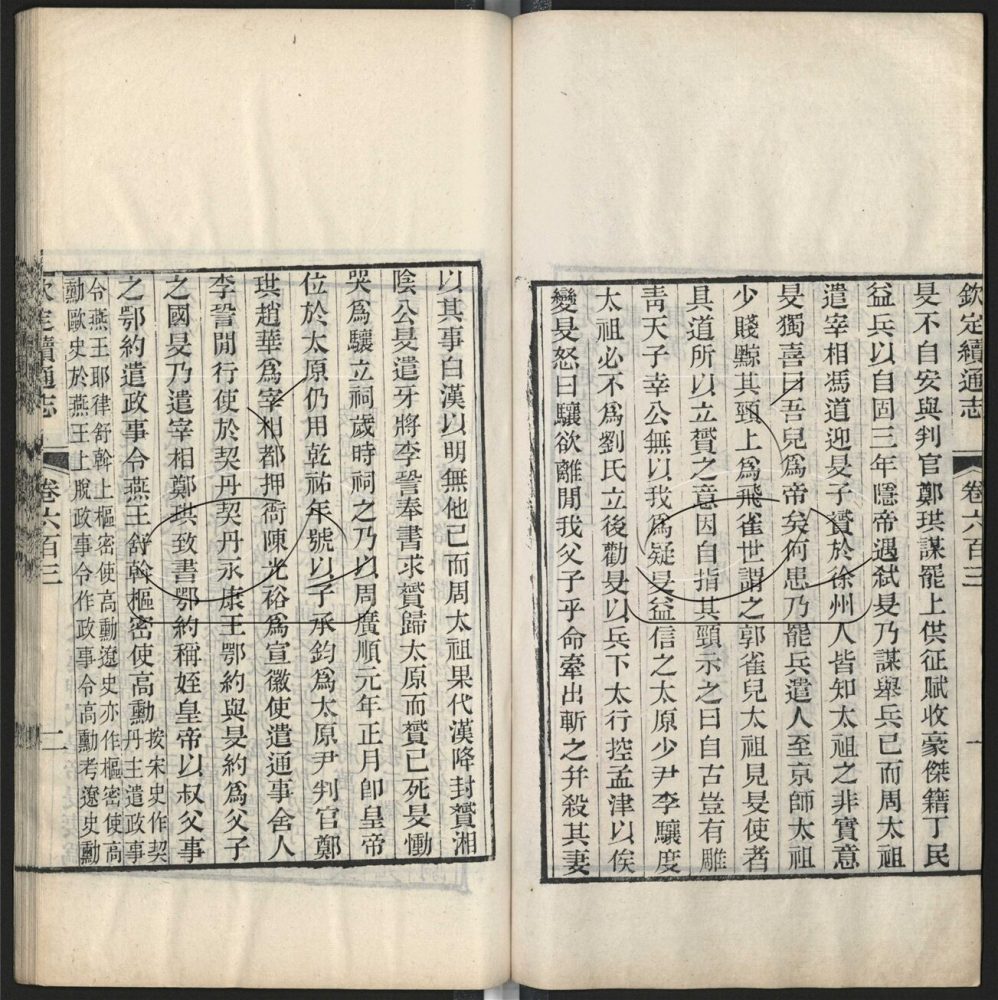 欽定續通志 卷六百三 一
旻不自安與判官鄭珙謀罷上供征賦收豪傑籍丁民
益兵以自固三年隱帝遇弒旻乃謀舉兵已而周太祖
遣宰相馮道迎旻子贇於徐州人皆知太祖之非實意
旻獨喜曰吾兒爲帝矣何患乃罷兵遣人至京師太祖
少賤黥其頸上爲飛雀世謂之郭雀兒太祖見旻使者
具道所以立贇之意因自指其頸示之曰自古豈有雕
靑天子幸公無以我爲疑旻益信之太原少尹李驤度
太祖必不爲劉氏立後勸旻以兵下太行控孟津以俟
變旻怒曰驤欲離閒我父子乎命牽出斬之幷殺其妻
以其事白漢以明無他已而周太祖果代漢降封贇湘
陰公旻遣牙將李䛒奉書求贇歸太原而贇已死旻慟
哭爲驤立祠歲時祠之乃以周廣順元年正月卽皇帝
位於太原仍用乾祐年號以子承鈞爲太原尹判官鄭
珙趙華爲宰相都押衙陳光裕爲宣徽使遣通事舍人
李䛒閒行使於契丹契丹永康王鄂約與旻約爲父子
之國旻乃遣宰相鄭珙致書鄂約稱姪皇帝以叔父事
之鄂約遣政事令燕王舒斡樞密使高勳按宋史作契丹主遣政事
令燕王耶律舒斡上樞密使高勳遼史亦作樞密使高
勳歐史於燕王上脫政事令作政事令高勳考遼史勳
欽定續通志 卷六百三 二